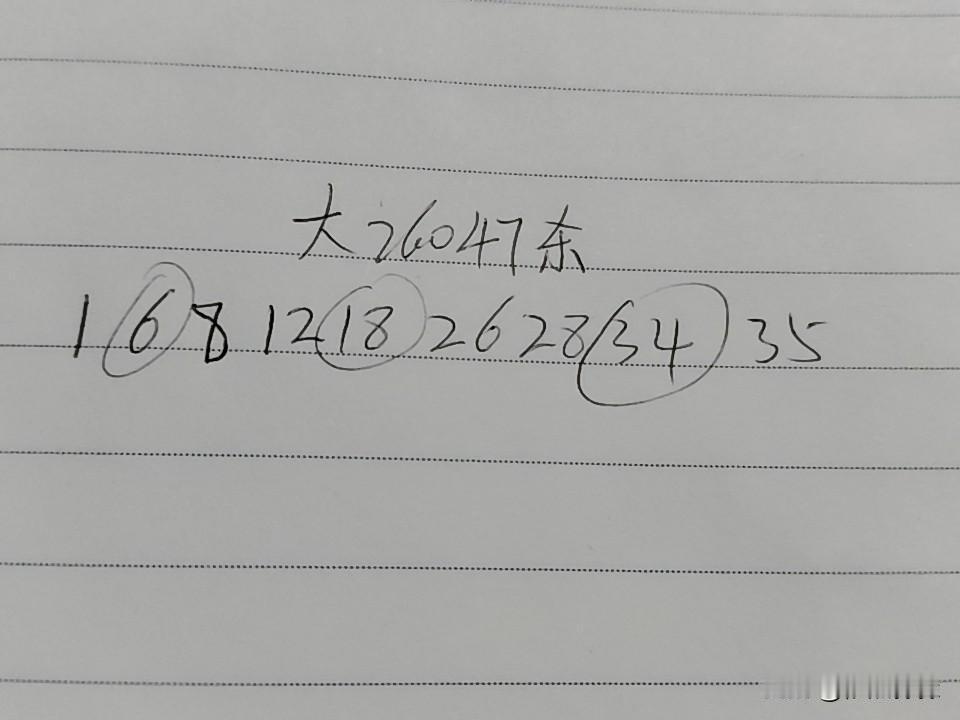 大26047东
1 6 8 12 18 26 28 34 35